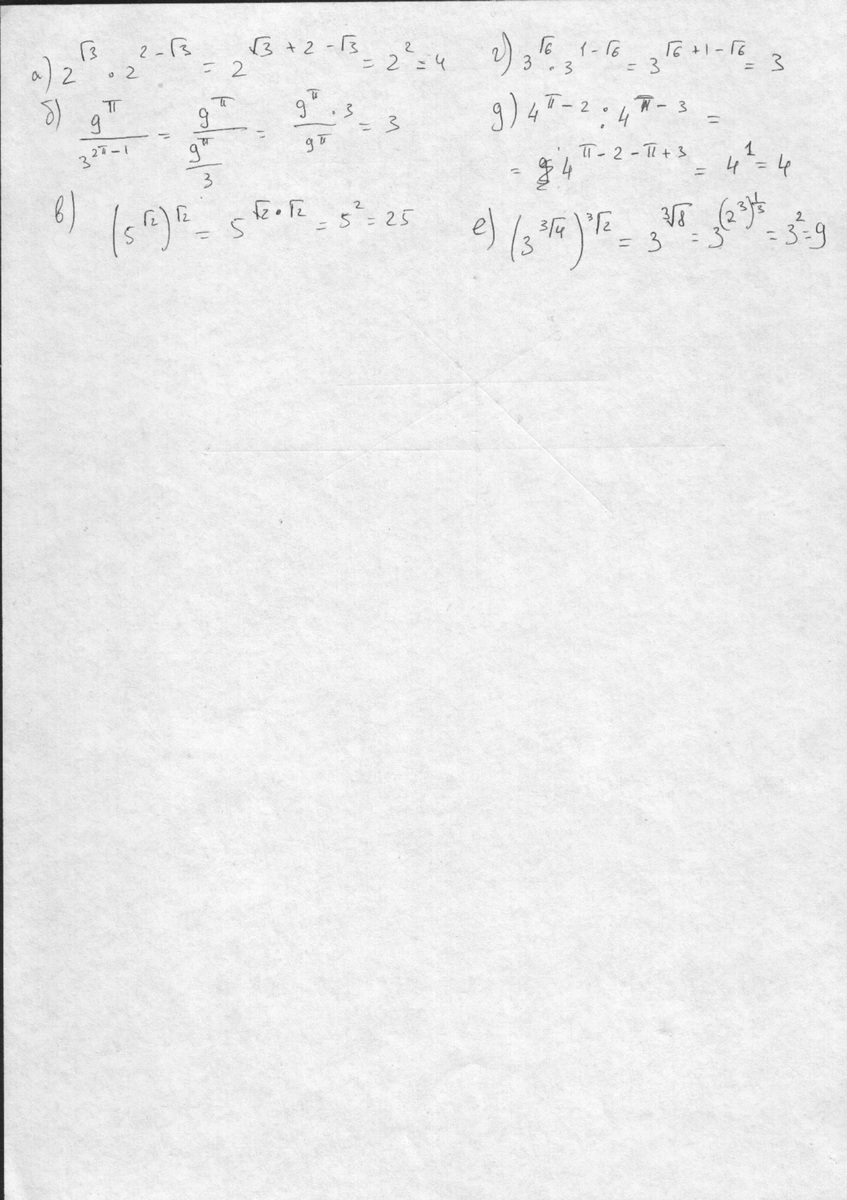 а) 2^√3 · 2^(2 − √3) = 2^(√3 + 2 − √3) = 2^2 = 4
б) 9^π / 3^(2π−1) = 9^π / (9^π / 3) = (9^π · 3) / 9^π = 3
в) (5^√2)^√2 = 5^(√2 · √2) = 5^2 = 25
г) 3^√6 · 3^(1 − √6) = 3^(√6 + 1 − √6) = 3
д) 4^(π − 2) : 4^(π − 3) =
= 4^(π − 2 − π + 3) = 4^1 = 4
е) (3^∛4)^∛2 = 3^∛8 = 3^((2^3)^(1/3)) = 3^2 = 9